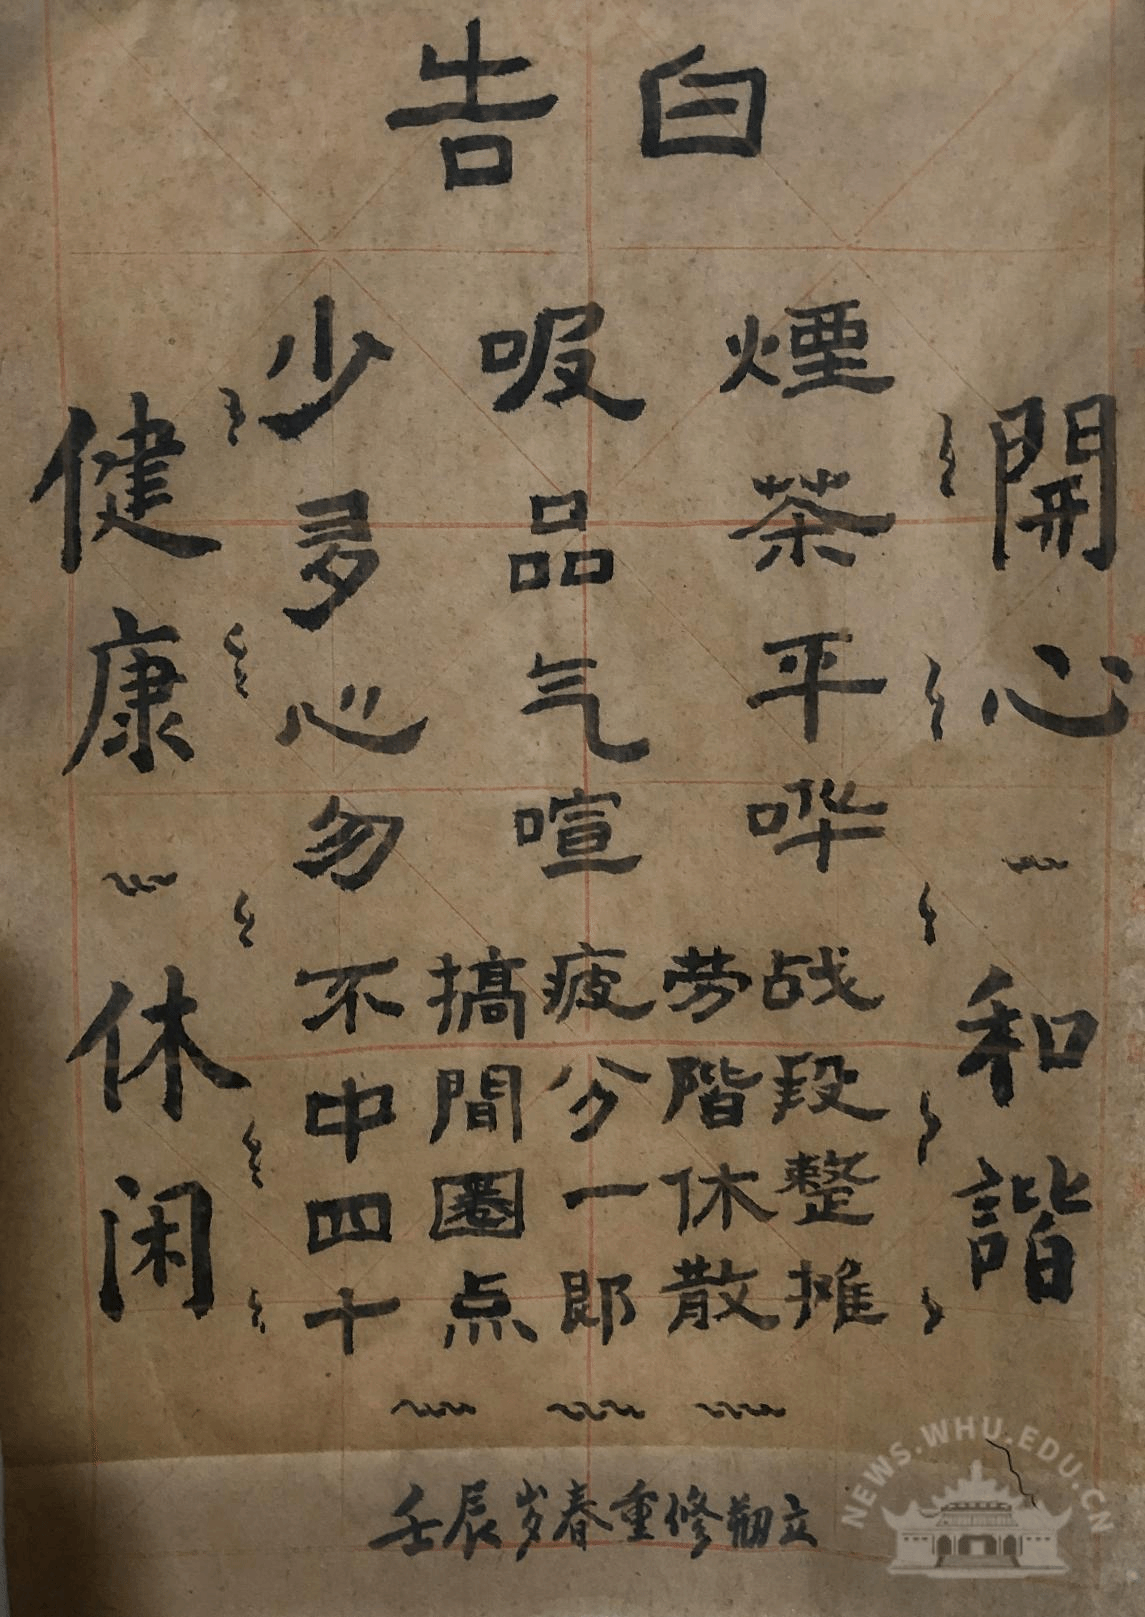 告白
開心~和諧
少吸煙
多品茶
心气平
勿喧哗
不搞疲劳战
中間分階段
四圈一休整
十点即散摊
健康~休闲
壬辰岁春重修立